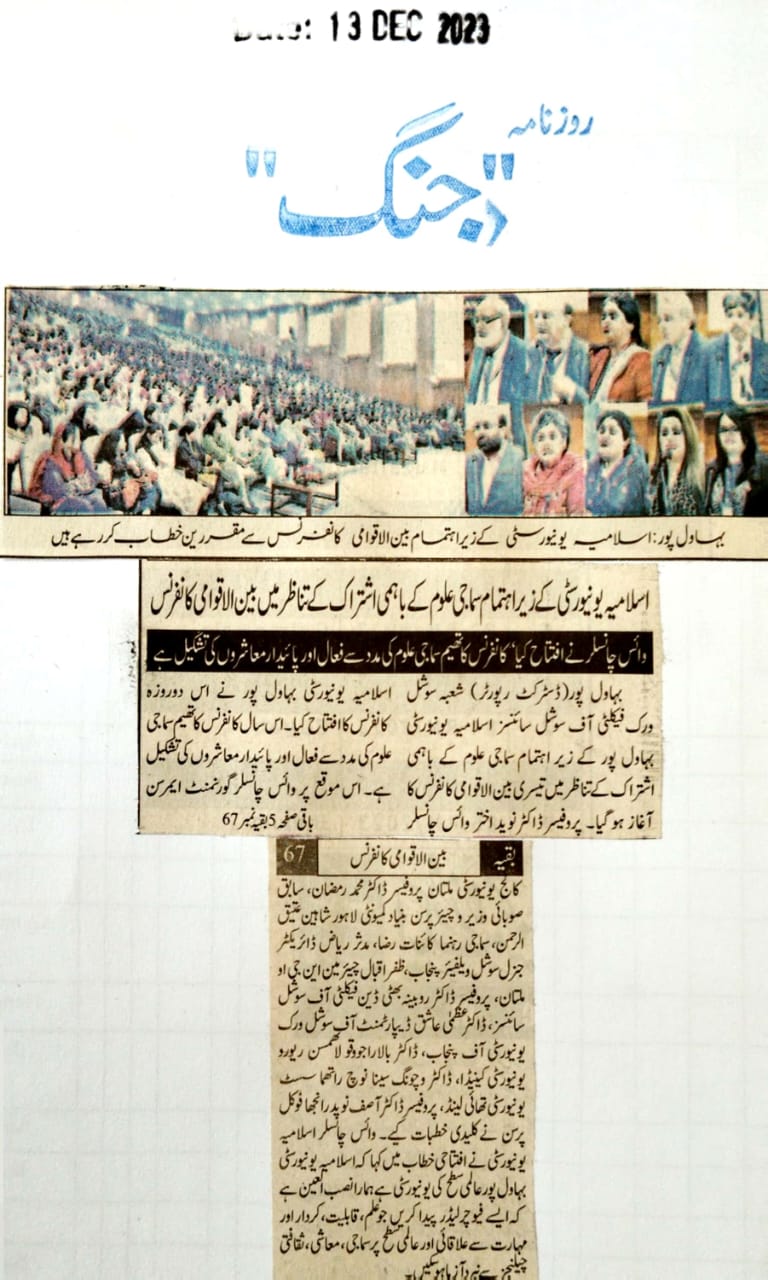 Date: 13 DEC 2023
روزنامہ
"جنگ"
بہاول پور: اسلامیہ یونیورسٹی کے زیر اہتمام بین الاقوامی کانفرنس سے مقررین خطاب کر رہے ہیں
اسلامیہ یونیورسٹی کے زیر اہتمام سماجی علوم کے باہمی اشتراک کے تناظر میں بین الاقوامی کانفرنس
وائس چانسلر نے افتتاح کیا، کانفرنس کا تھیم سماجی علوم کی مدد سے فعال اور پائیدار معاشروں کی تشکیل ہے
بہاول پور (ڈسٹرکٹ رپورٹر) شعبہ سوشل
ورک فیکلٹی آف سوشل سائنسز اسلامیہ یونیورسٹی
بہاول پور کے زیر اہتمام سماجی علوم کے باہمی
اشتراک کے تناظر میں تیسری بین الاقوامی کانفرنس کا
آغاز ہو گیا۔ پروفیسر ڈاکٹر نوید اختر وائس چانسلر
اسلامیہ یونیورسٹی بہاول پور نے اس دو روزہ
کانفرنس کا افتتاح کیا۔ اس سال کانفرنس کا تھیم سماجی
علوم کی مدد سے فعال اور پائیدار معاشروں کی تشکیل
ہے۔ اس موقع پر وائس چانسلر گورنمنٹ ایمرسن
باقی صفحہ 5 بقیہ نمبر 67
بقیہ بین الاقوامی کانفرنس 67
کالج یونیورسٹی ملتان پروفیسر ڈاکٹر محمد رمضان، سابق
صوبائی وزیر و چیئر پرسن بنیاد کمیونٹی لاہور شاہین عتیق
الرحمن، سماجی رہنما کائنات رضا، مدثر ریاض ڈائریکٹر
جنرل سوشل ویلفیئر پنجاب، ظفر اقبال چیئرمین این جی او
ملتان، پروفیسر ڈاکٹر روبینہ بھٹی ڈین فیکلٹی آف سوشل
سائنسز، ڈاکٹر عظمٰی عاشق ڈیپارٹمنٹ آف سوشل ورک
یونیورسٹی آف پنجاب، ڈاکٹر بالاراجوو قو لا تھمسن ریورو
یونیورسٹی کینیڈا، ڈاکٹر وچونگ سینا نوچ راتھما سٹ
یونیورسٹی تھائی لینڈ، پروفیسر ڈاکٹر آصف نوید رانجھا فوکل
پرسن نے کلیدی خطبات کیے۔ وائس چانسلر اسلامیہ
یونیورسٹی نے افتتاحی خطاب میں کہا کہ اسلامیہ یونیورسٹی
بہاول پور عالمی سطح کی یونیورسٹی ہے ہمارا نصب العین ہے
کہ ایسے فیوچر لیڈر پیدا کریں جو علم، قابلیت، کردار اور
مہارت سے علاقائی اور عالمی سطح پر سماجی، معاشی، ثقافتی
چیلنجز سے نبرد آزما ہو سکیں۔